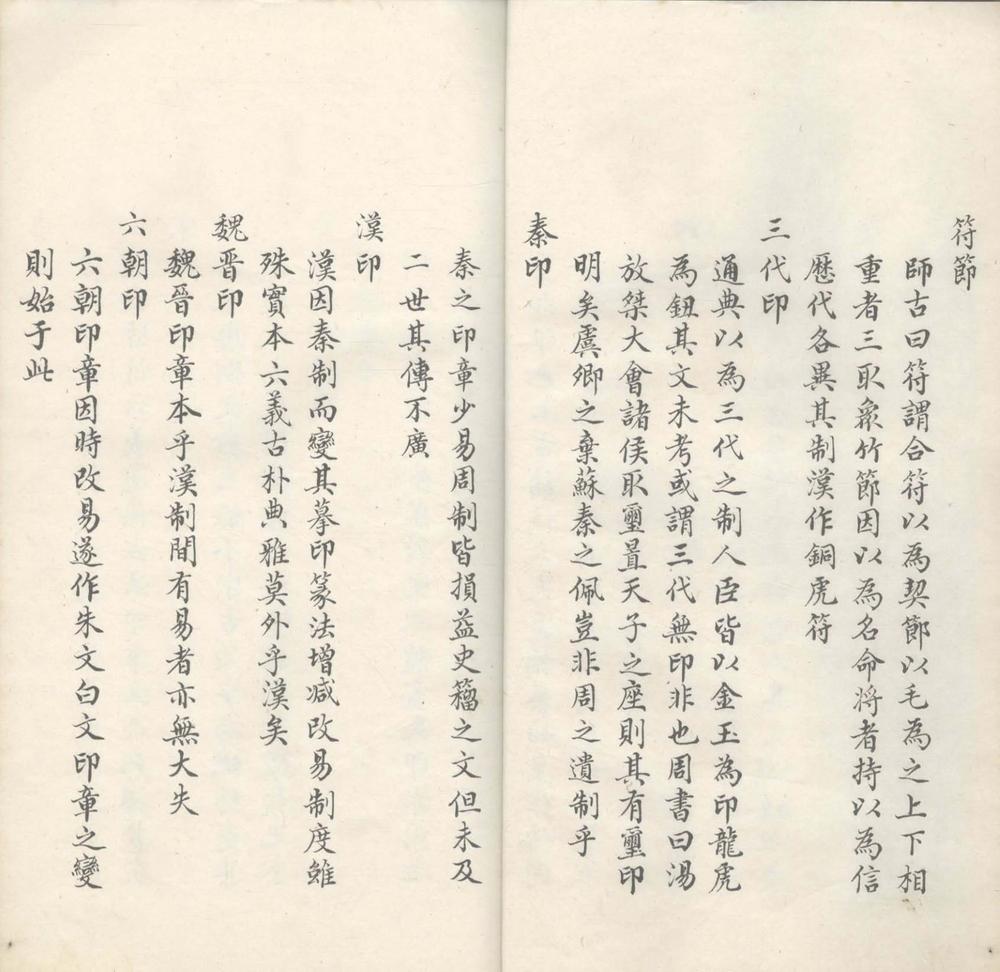 符節
師古曰符謂合符以為契節以毛為之上下相
重者三取象竹節因以為名命將者持以為信
歷代各異其制漢作銅虎符
三代印
通典以為三代之制人臣皆以金玉為印龍虎
為鈕其文未考或謂三代無印非也周書曰湯
放桀大會諸侯取璽置天子之座則其有璽印
明矣虞卿之棄蘇秦之佩豈非周之遺制乎
秦印
秦之印章少易周制皆損益史籀之文但未及
二世其傳不廣
漢印
漢因秦制而變其摹印篆法增減改易制度雖
殊實本六義古朴典雅莫外乎漢矣
魏晉印
魏晉印章本乎漢制間有易者亦無大失
六朝印
六朝印章因時改易遂作朱文白文印章之變
則始于此